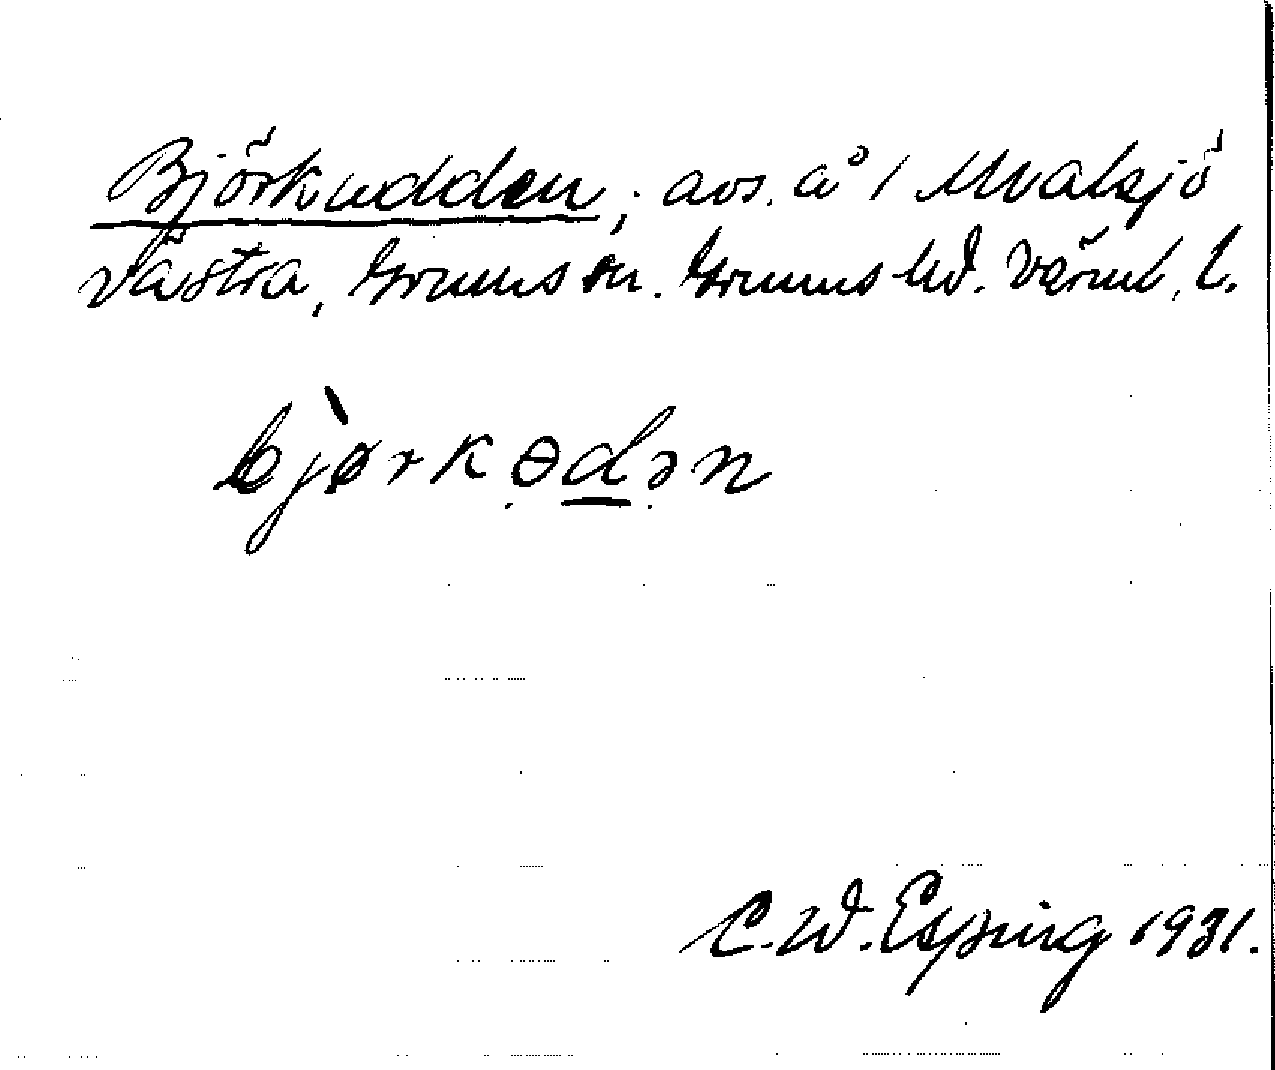 Björkudden; avs. å 1 Mvalsjö
västra, Grums sn. Grums hd. Värml. l.
bjørkɵdən
C. W. Esping 1931.